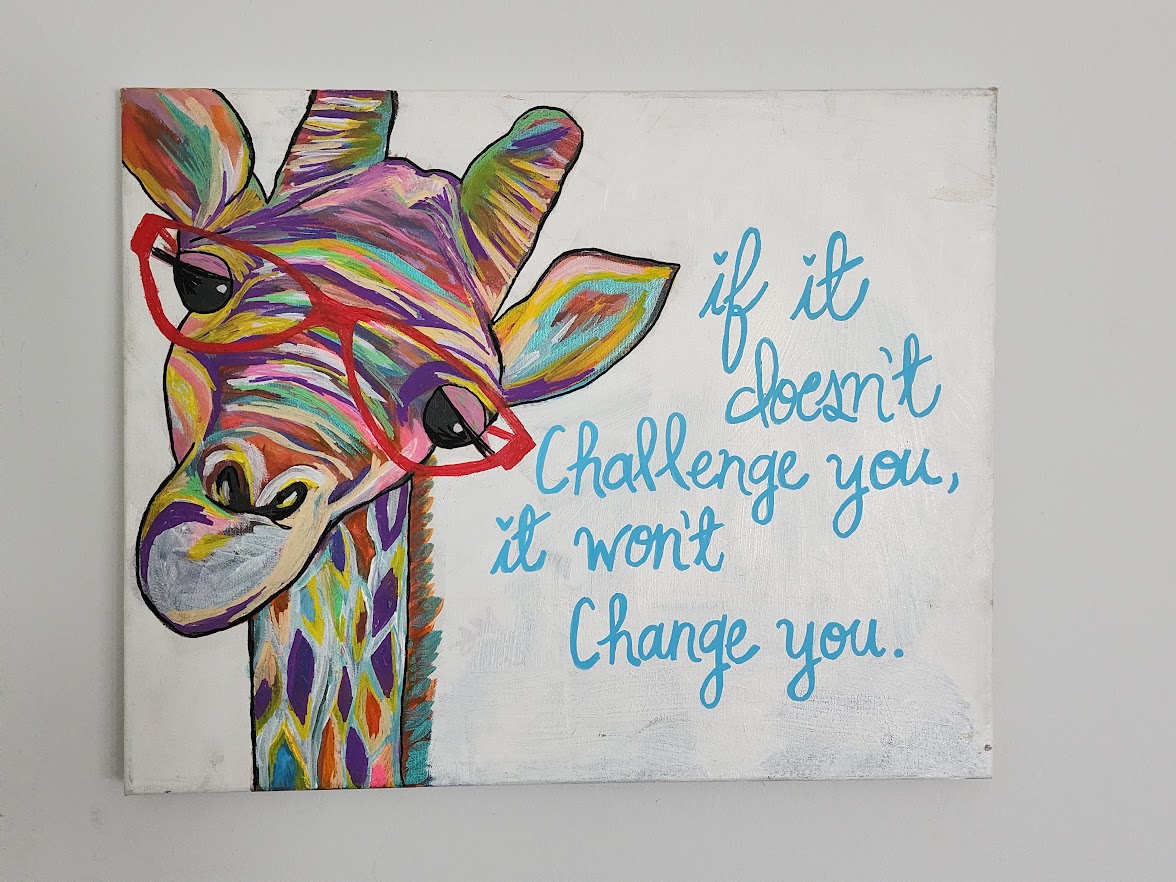 if it
doesn't
Challenge you,
it won't
Change you.